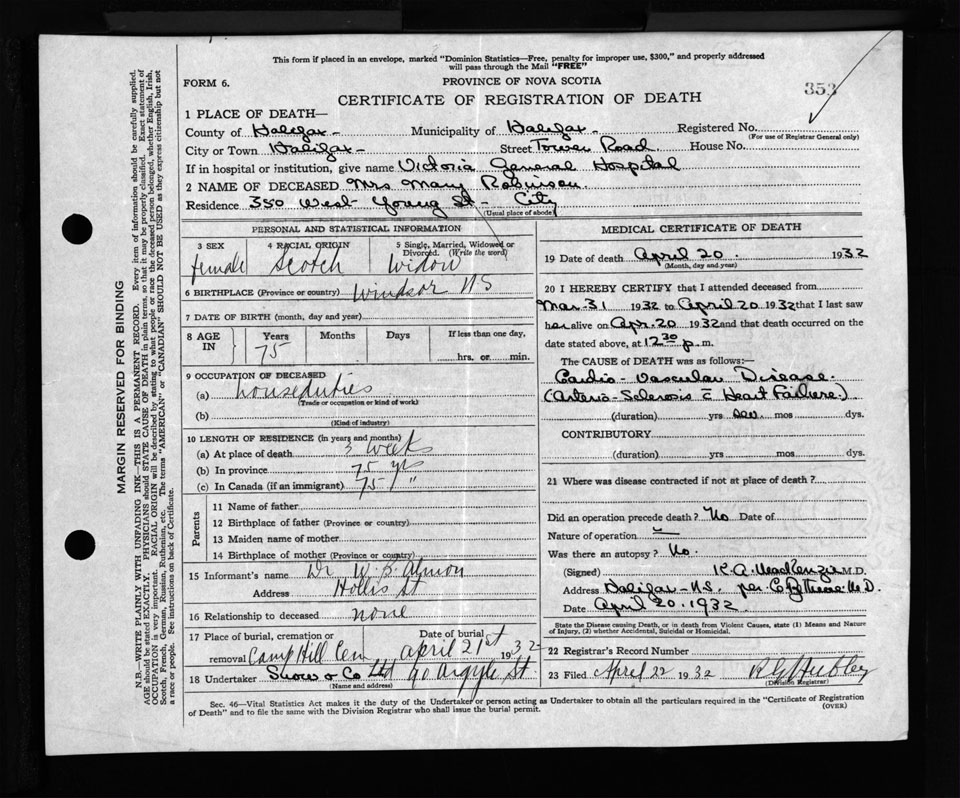 This form if placed in an envelope, marked "Dominion Statistics—Free, penalty for improper use, $300," and properly addressed
will pass through the Mail "FREE"
FORM 6.
PROVINCE OF NOVA SCOTIA
353
CERTIFICATE OF REGISTRATION OF DEATH
1 PLACE OF DEATH—
County of Halifax - Municipality of Halifax - Registered No.
(For use of Registrar General only)
City or Town Halifax - Street Tower Road House No.
If in hospital or institution, give name Victoria General Hospital
2 NAME OF DECEASED Mrs Mary Robinson
Residence 350 West Young St - City
(Usual place of abode)
PERSONAL AND STATISTICAL INFORMATION
3 SEX
female
4 RACIAL ORIGIN
Scotch
5 Single, Married, Widowed or Divorced. (Write the word)
Widow
6 BIRTHPLACE (Province or country) Windsor NS
7 DATE OF BIRTH (month, day and year)
8 AGE IN
Years Months Days If less than one day,
75
hrs. or min.
9 OCCUPATION OF DECEASED
(a) houseduties
(Trade or occupation or kind of work)
(b)
(Kind of industry)
10 LENGTH OF RESIDENCE (in years and months)
(a) At place of death 3 weeks
(b) In province 75 yrs
(c) In Canada (if an immigrant) 75 "
Parents
11 Name of father
12 Birthplace of father (Province or country)
13 Maiden name of mother
14 Birthplace of mother (Province or country)
15 Informant's name Dr W. B. Almon
Address Hollis St
16 Relationship to deceased none
17 Place of burial, cremation or removal Camp Hill Cem
Date of burial April 21st 1932
18 Undertaker Snow & Co Ltd 90 Argyle St.
(Name and address)
MEDICAL CERTIFICATE OF DEATH
19 Date of death April 20. 1932
(Month, day and year)
20 I HEREBY CERTIFY that I attended deceased from
Mar. 31 1932 to April 20 1932 that I last saw
her alive on Apr. 20 1932 and that death occurred on the
date stated above, at 12 30 p. m.
The CAUSE of DEATH was as follows:—
Cardio - Vascular Disease.
(Arterio-Sclerosis c̄ Heart Failure.)
(duration) yrs mos dys.
CONTRIBUTORY
(duration) yrs mos dys.
21 Where was disease contracted if not at place of death?
Did an operation precede death? No Date of
Nature of operation
Was there an autopsy? No.
(Signed) K. A. MacKenzie M.D.
Address Halifax - N.S. per M.D.
Date April 20. 1932
State the Disease causing Death, or in death from Violent Causes, state (1) Means and
Nature of Injury, (2) whether Accidental, Suicidal or Homicidal.
22 Registrar's Record Number
23 Filed April 22 1932
(Division Registrar)
Sec. 46—Vital Statistics Act makes it the duty of the Undertaker or person acting as Undertaker to obtain all the particulars required in the "Certificate of Registration
of Death" and to file the same with the Division Registrar who shall issue the burial permit.
(OVER)
MARGIN RESERVED FOR BINDING
N.B.—WRITE PLAINLY WITH UNFADING INK—THIS IS A PERMANENT RECORD. Every item of information should be carefully supplied.
AGE should be stated EXACTLY. PHYSICIANS should STATE CAUSE OF DEATH in plain terms, so that it may be properly classified. Exact statement of
OCCUPATION is very important. RACIAL ORIGIN will be described by stating to what people or race the deceased person belonged, whether English, Irish,
Scotch, French, German, Russian, Ruthenian, etc. The terms "AMERICAN" or "CANADIAN" SHOULD NOT BE USED as they express citizenship but not
a race or people. See instructions on back of Certificate.